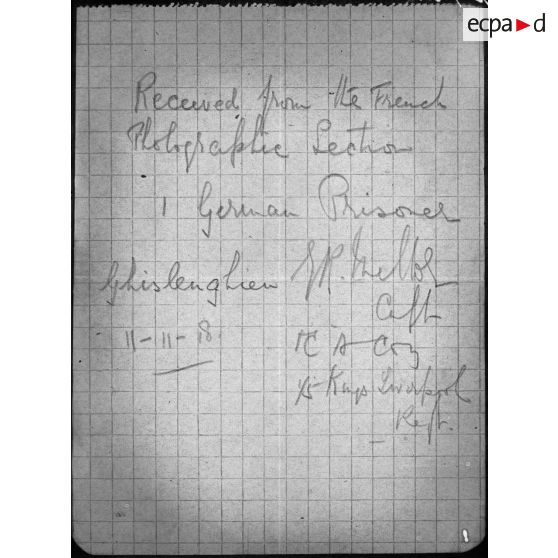 ecpa d
Received from the French
Photographic Section
1 German Prisoner
Ghislenghien
Capt
11-11-18.
A Coy
1/5 Kings Liverpool
Regt.